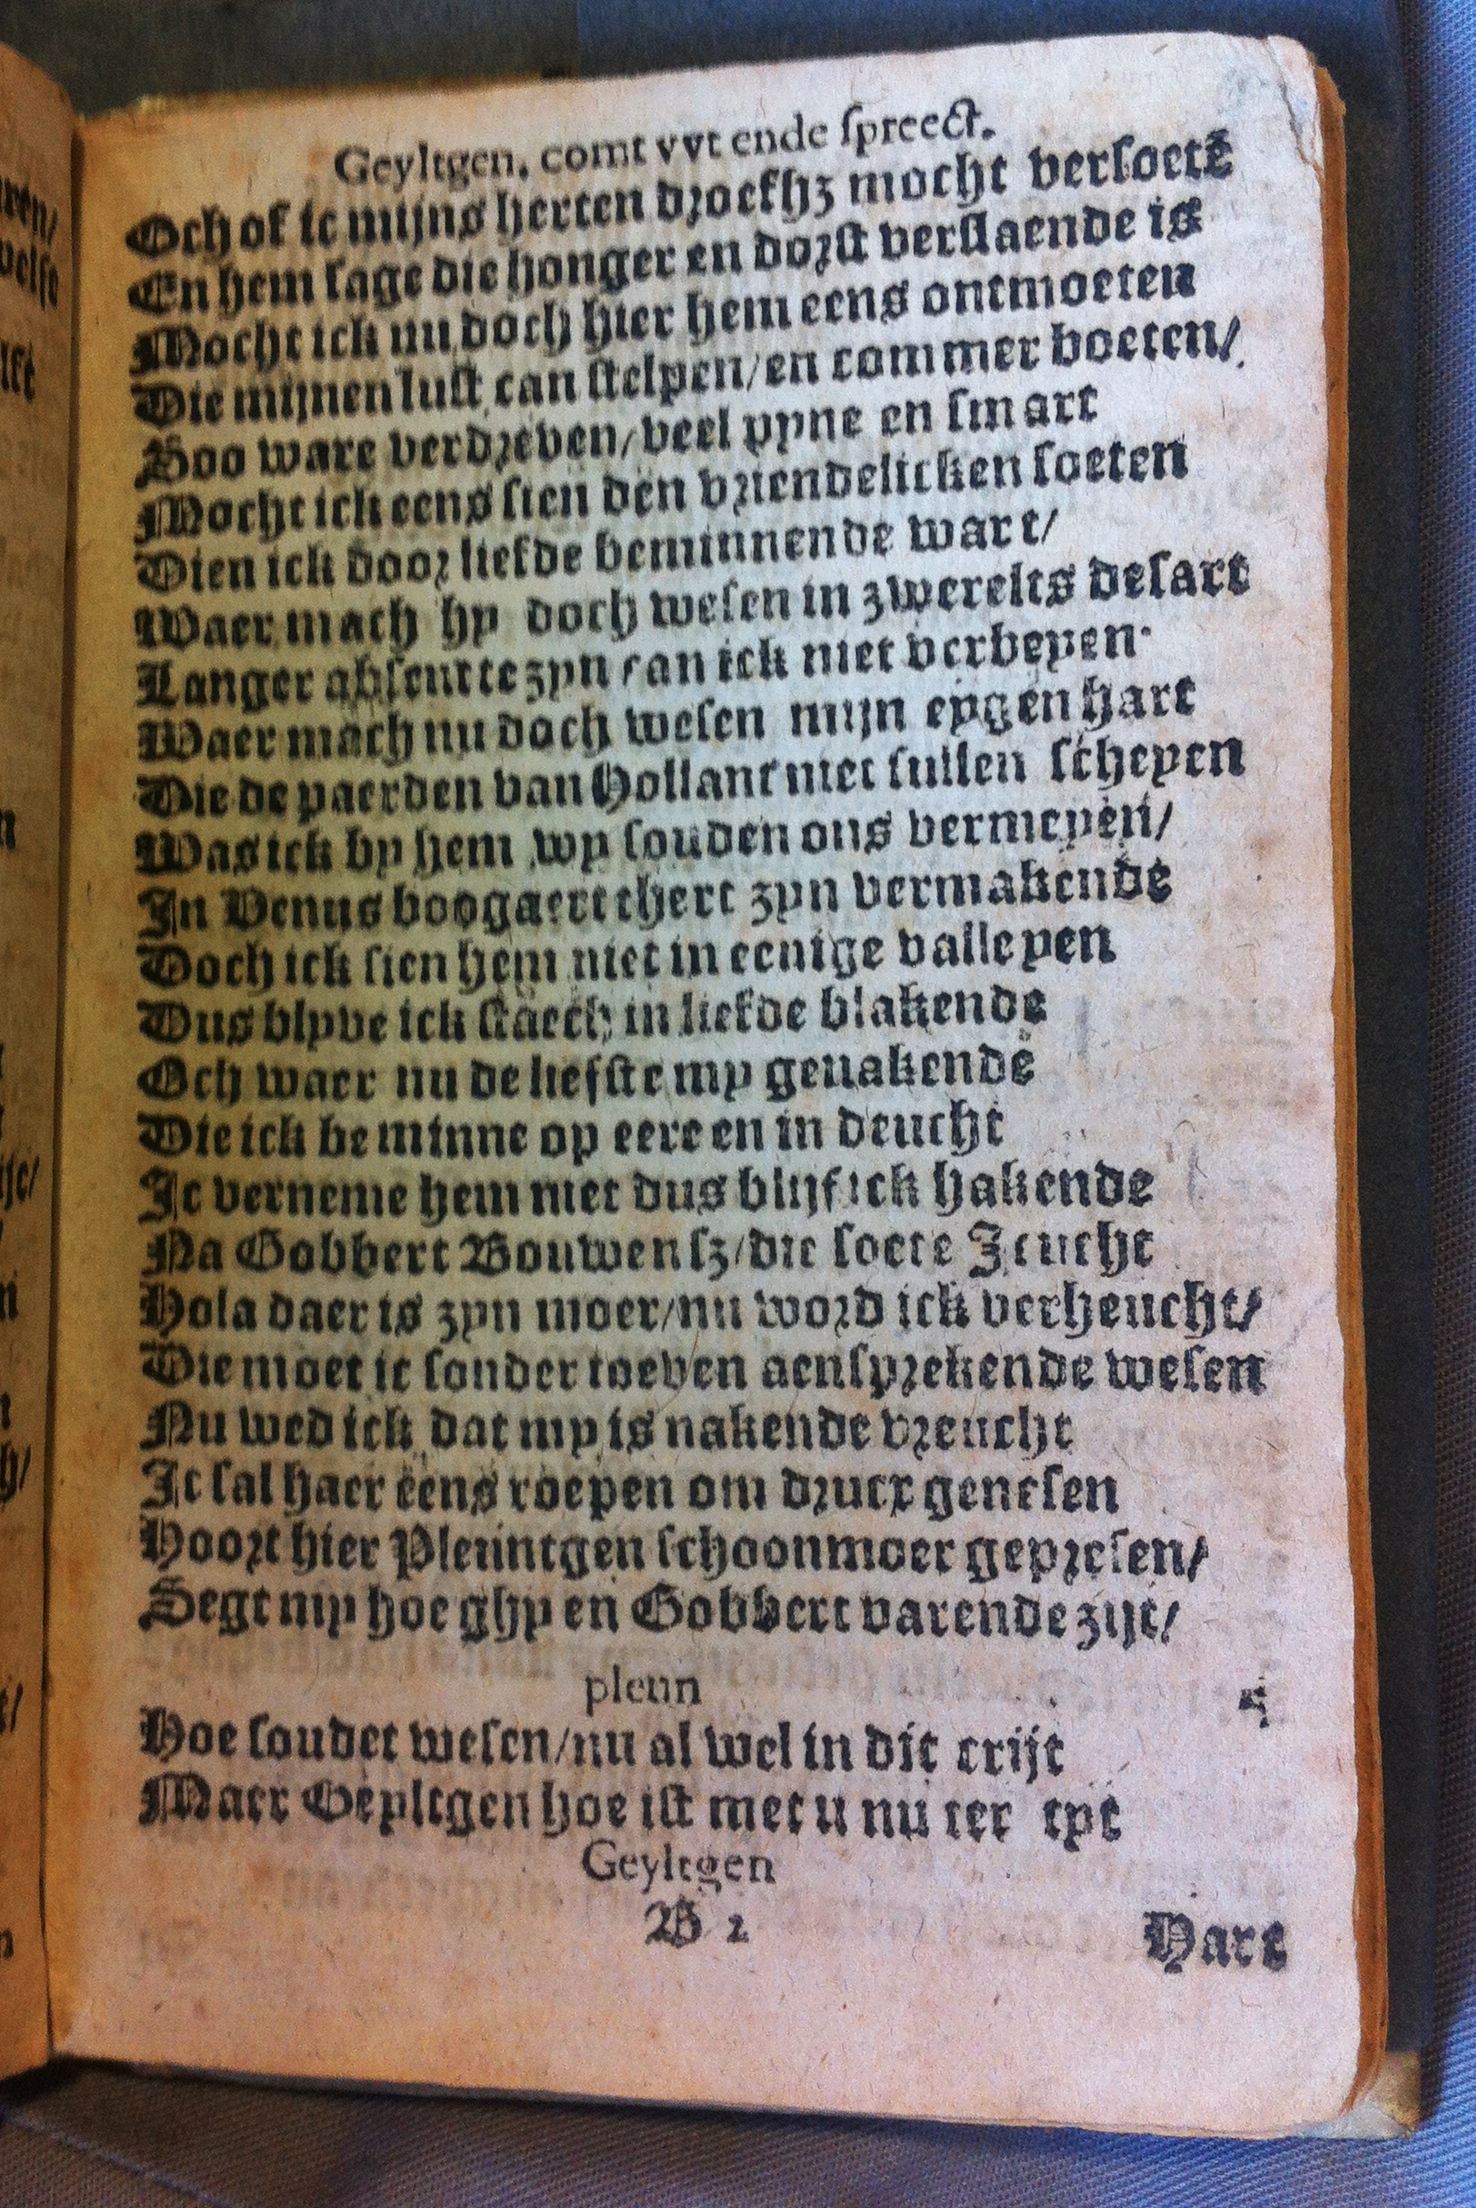 Geyltgen. comt vvt ende spreect.
Och of ic mijns herten droefhz mocht versoetē
En hem sage die honger en dorst verslaende is
Mocht ick nu doch hier hem eens ontmoeten
Die mijnen lust can stelpen/en commer boeten/
Soo ware verdreven/veel pyne en smart
Mocht ick eens sien den vriendelicken soeten
Dien ick door liefde beminnende wart/
Waer mach hy doch wesen in zwerelts desart
Langer absent te zyn can ick niet verbeyen
Waer mach nu doch wesen mijn eygen hart
Die de paerden van Hollant niet sullen scheyen
Was ick by hem wy souden ons vermeyen/
In Venus boogaert thert zyn vermakende
Doch ick sien hem niet in eenige valleyen
Dus blyve ick staech in liefde blakende
Och waer nu de liefste my genakende
Die ick beminne op eere en in deucht
Ic verneme hem niet dus blijf ick hakende
Na Gobbert Bouwensz/die soete Jeucht
Hola daer is zyn moer/nu word ick verheucht/
Die moet ic sonder toeven aensprekende wesen
Nu wed ick dat my is nakende vreucht
Ic sal haer eens roepen om drucx genesen
Hoort hier Pleuntgen schoonmoer gepresen/
Segt my hoe ghy en Gobbert varende zijt/
pleun
Hoe soudet wesen/nu al wel in dit crijt
Maer Geyltgen hoe ist met u nu ter tyt
Geyltgen
B 2
Hart